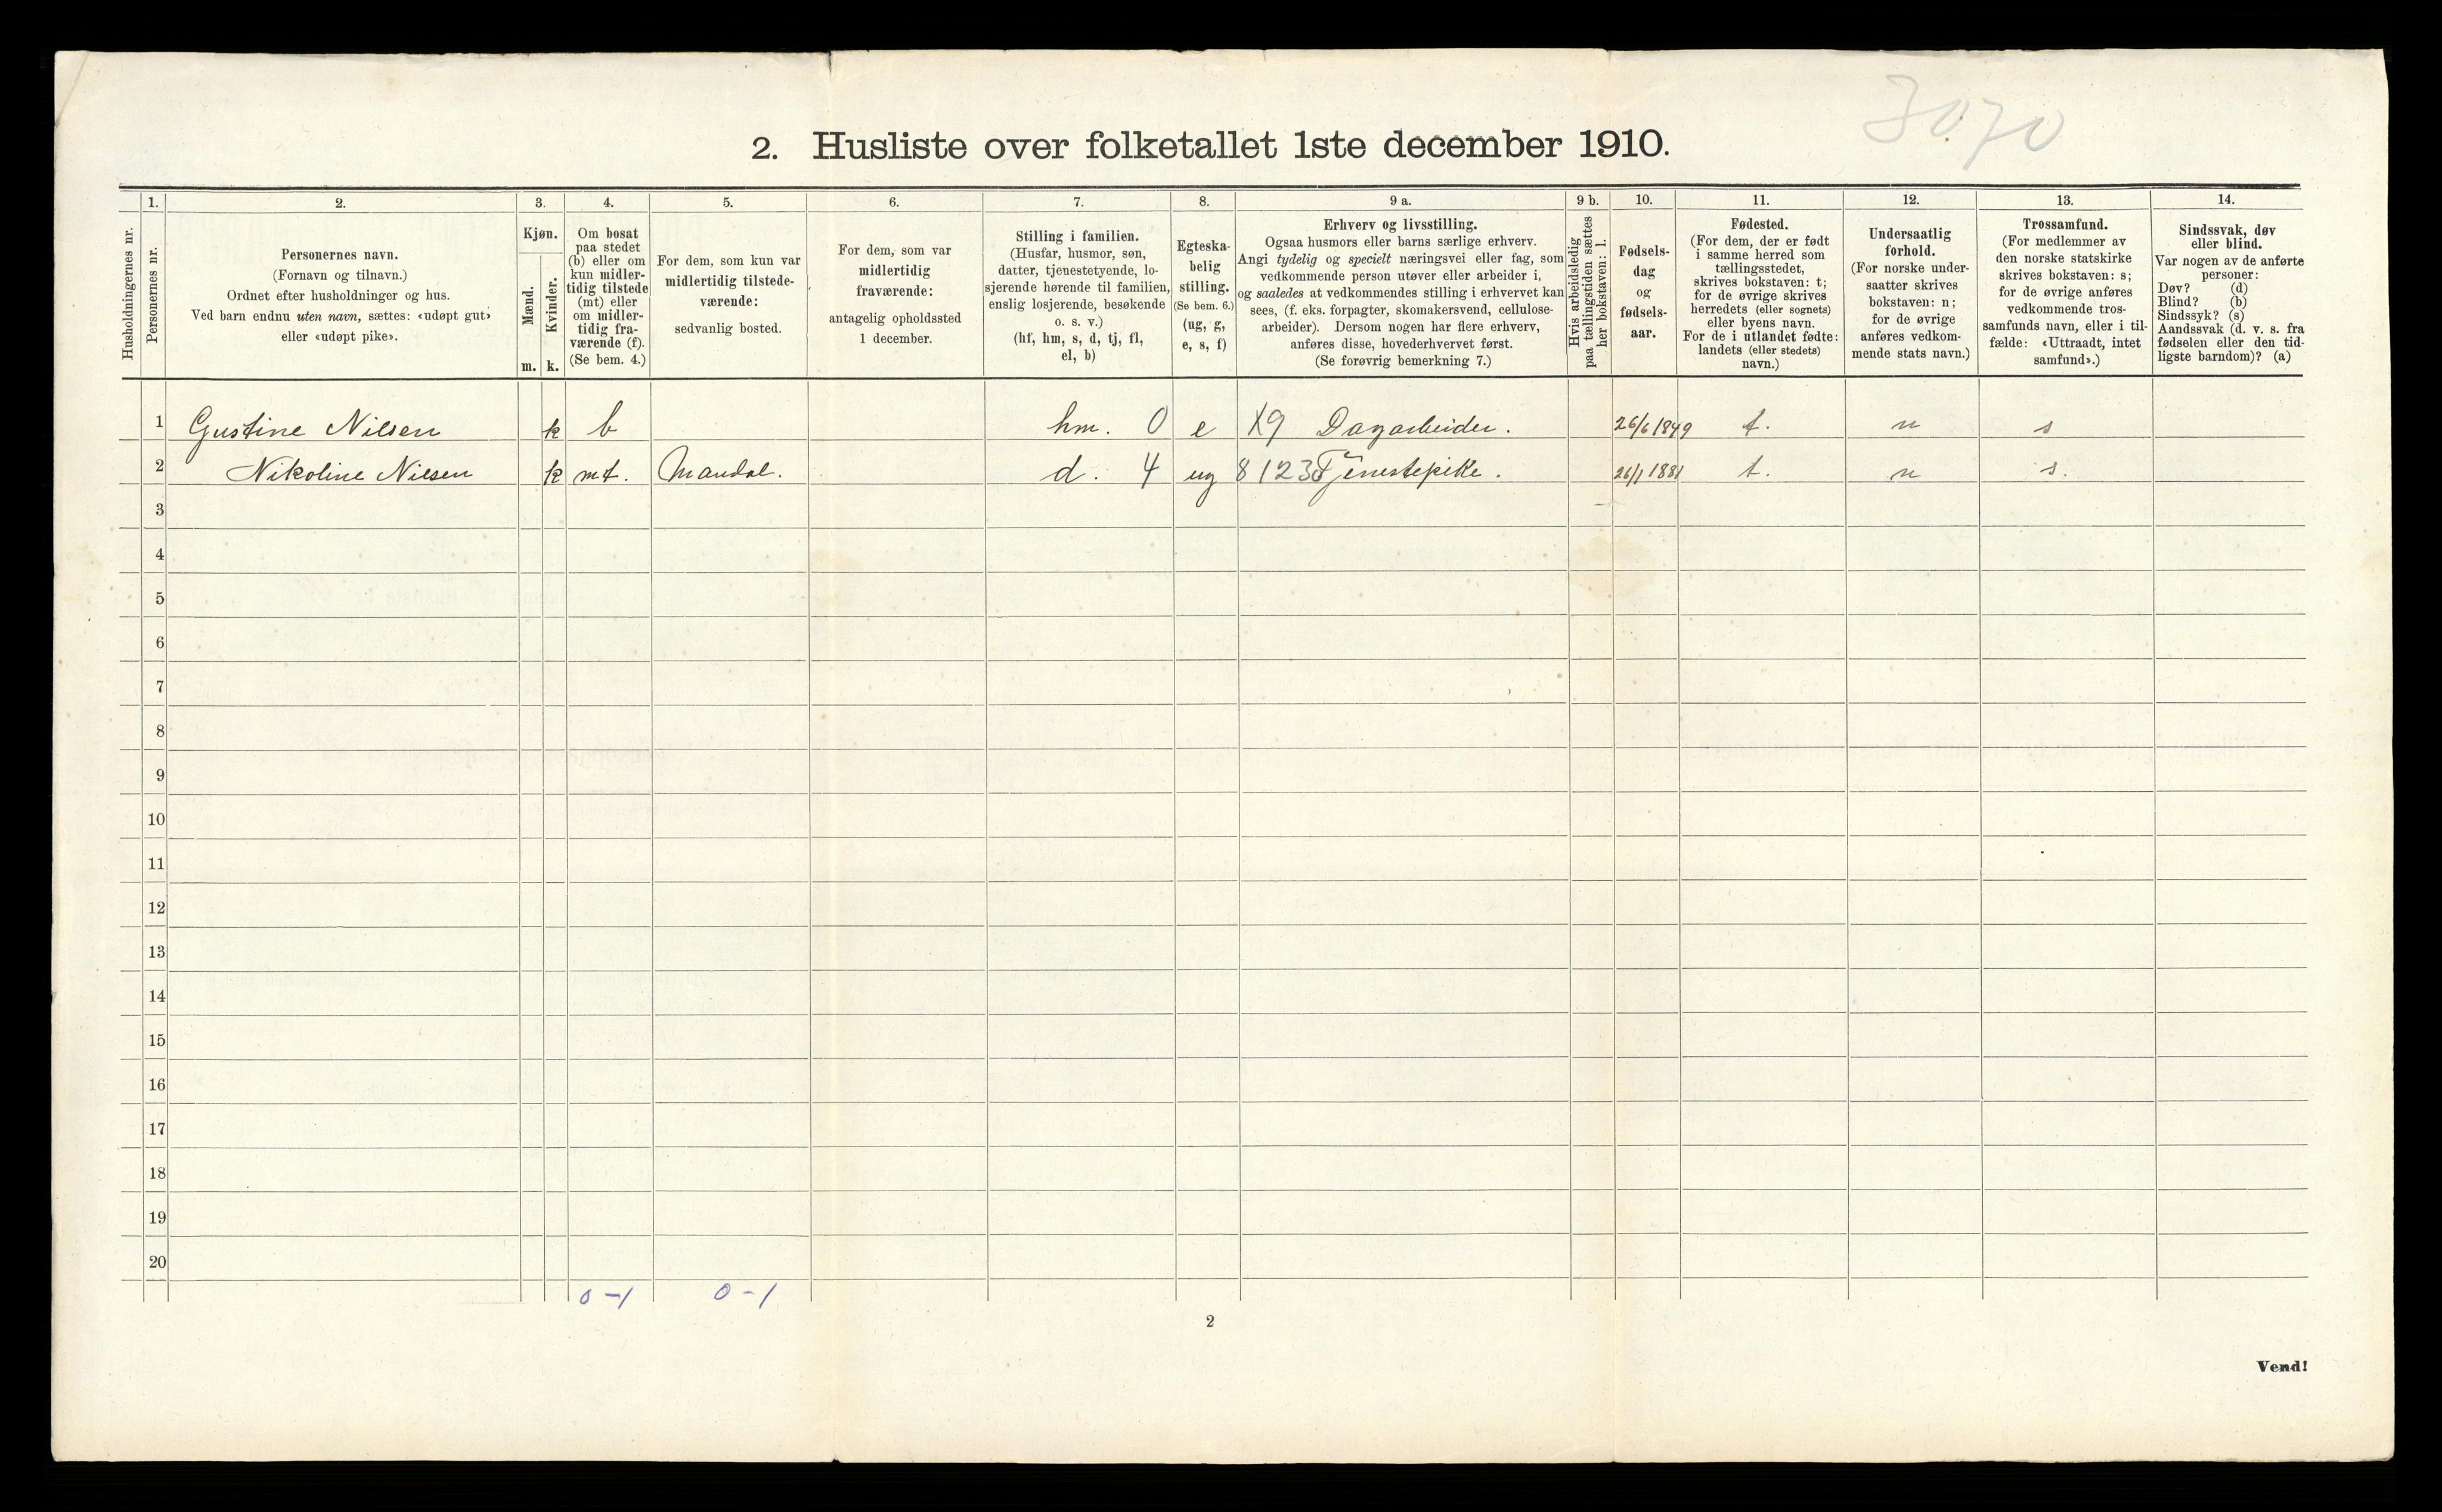 3070
2. Husliste over folketallet 1ste december 1910.
Husholdningernes nr.
1.
Personernes nr.
2.
Personernes navn.
(Fornavn og tilnavn.)
Ordnet efter husholdninger og hus.
Ved barn endnu uten navn, sættes: «udøpt gut»
eller «udøpt pike».
3.
Kjøn.
Mænd.
Kvinder.
m. k.
4.
Om bosat
paa stedet
(b) eller om
kun midler-
tidig tilstede
(mt) eller
om midler-
tidig fra-
værende (f).
(Se bem. 4.)
5.
For dem, som kun var
midlertidig tilstede-
værende:
sedvanlig bosted.
6.
For dem, som var
midlertidig
fraværende:
antagelig opholdssted
1 december.
7.
Stilling i familien.
(Husfar, husmor, søn,
datter, tjenestetyende, lo-
sjerende hørende til familien,
enslig losjerende, besøkende
o. s. v.)
(hf, hm, s, d, tj, fl,
el, b)
8.
Egteska-
belig
stilling.
(Se bem. 6.)
(ug, g,
e, s, f)
9 a.
Erhverv og livsstilling.
Ogsaa husmors eller barns særlige erhverv.
Angi tydelig og specielt næringsvei eller fag, som
vedkommende person utøver eller arbeider i,
og saaledes at vedkommendes stilling i erhvervet kan
sees, (f. eks. forpagter, skomakersvend, cellulose-
arbeider). Dersom nogen har flere erhverv,
anføres disse, hovederhvervet først.
(Se forøvrig bemerkning 7.)
9 b.
Hvis arbeidsledig
paa tællingstiden sættes
her bokstaven: l.
10.
Fødsels-
dag
og
fødsels-
aar.
11.
Fødested.
(For dem, der er født
i samme herred som
tællingsstedet,
skrives bokstaven: t;
for de øvrige skrives
herredets (eller sognets)
eller byens navn.
For de i utlandet fødte:
landets (eller stedets)
navn.)
12.
Undersaatlig
forhold.
(For norske under-
saatter skrives
bokstaven: n;
for de øvrige
anføres vedkom-
mende stats navn.)
13.
Trossamfund.
(For medlemmer av
den norske statskirke
skrives bokstaven: s;
for de øvrige anføres
vedkommende tros-
samfunds navn, eller i til-
fælde: «Uttraadt, intet
samfund».)
14.
Sindssvak, døv
eller blind.
Var nogen av de anførte
personer:
Døv? (d)
Blind? (b)
Sindssyk? (s)
Aandssvak (d. v. s. fra
fødselen eller den tid-
ligste barndom)? (a)
1 Gustine Nilsen k b hm. 0 e X9 Dagarbeider. 26/6 1849 t. n s
2 Nikoline Nilsen k mt. Mandal. d. 4 ug 8123 Tjenestepike. 26/1 1881 t. n s.
3
4
5
6
7
8
9
10
11
12
13
14
15
16
17
18
19
20
0-1 0-1
2
Vend!